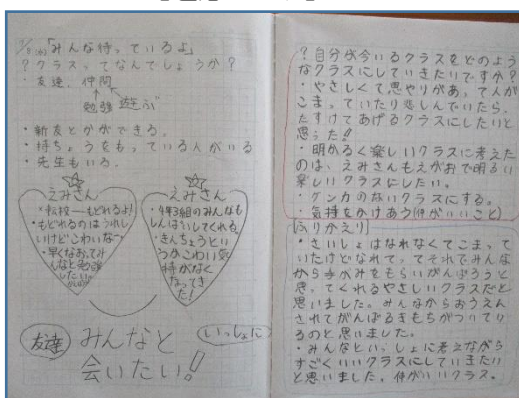 「みんな待っているよ」
?クラスってなんでしょうか?
・友達、仲間
勉強 遊ぶ
・新友とかができる。
・持ちょうをもっている人がいる
・先生もいる。
えみさん
×転校→もどれるよ!
・もどれるのはうれし
いけどこわいな〜
・早くなおってみ
んなと勉強
したい。
えみさん
・4年3組のみんなも
しんぱいしてくれる。
・きんちょうとい
うかこわい気
持がなく
なってき
た!
友達
みんなと
いっしょに
会いたい。!
?自分が今いるクラスをどのよう
なクラスにしていきたいですか?
・やさしくて思やりがあって人が
こまっていたり悲しんでいたら、
たすけてあげるクラスにしたいと
思った!!
・明かるく楽しいクラスに考えた
のは、えみさんもえがおで明るい
楽しいクラスにしたい。
・ケンカのないクラスにする。
・気持をかけあう(仲がいいこと)
[ふりかえり]
・さいしょはなれなくてこまって
いたけどなれて、ってそれでみんな
から手がみをもらいがんばろうと
思ってくれるやさしいクラスだと
思いました。みんなからおうえん
されてがんばるきもちがついてり
るのと思いました。
・みんなといっしょに考えながら
すごくいいクラスにしていきたい
と思いました。仲がいいクラス。